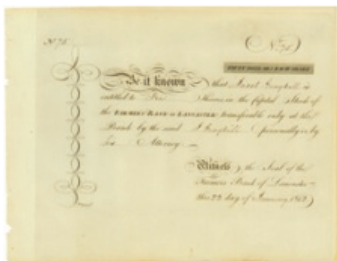 No. 76
No. 76
FIFTY DOLLARS EACH SHARE
Be it known that
entitled to Shares in the Capital Stock of
the FARMERS BANK OF LANCASTER transferable only at the
Bank by the said personally or by
his Attorney
Witness the Seal of the
Farmers Bank of Lancaster
this 22 day of January